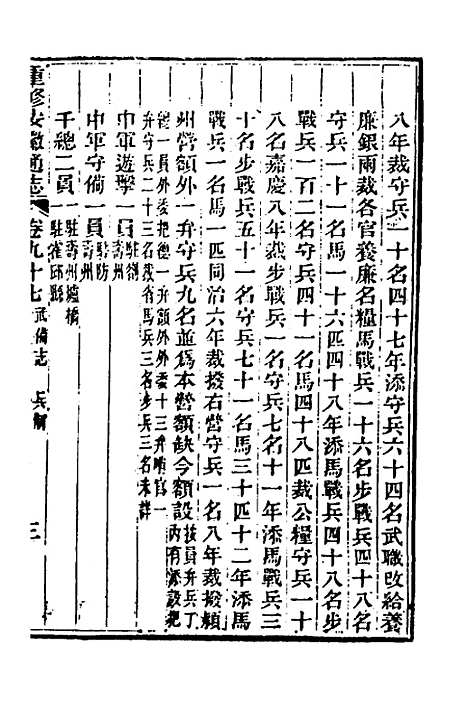 八年裁守兵一十名四十七年添守兵六十四名武職改給養
廉銀兩裁各官養廉名糧馬戰兵一十六名步戰兵四十八名
守兵一十一名馬一十六匹四十八年添馬戰兵四十八名步
戰兵一百二名守兵四十一名馬四十八匹裁公糧守兵一十
八名嘉慶八年裁步戰兵一名守兵七名十一年添馬戰兵三
十名步戰兵五十一名守兵七十一名馬三十匹十二年添馬
戰兵一名馬一匹同治六年裁撥右營守兵一名八年裁撥穎
州營額外一弁守兵九名並為本營額缺今額設按員弁兵丁內有添設把
總一員外委把總一員額外外委十三弁嗩官一弁守兵二十三名裁省馬兵三名步兵三名未詳
中軍遊擊一員駐劄壽州
中軍守備一員駐防壽州
千總二員一駐壽州爐橋一駐霍邱縣
重修安徽通志 卷九十七 武備志 兵制 三